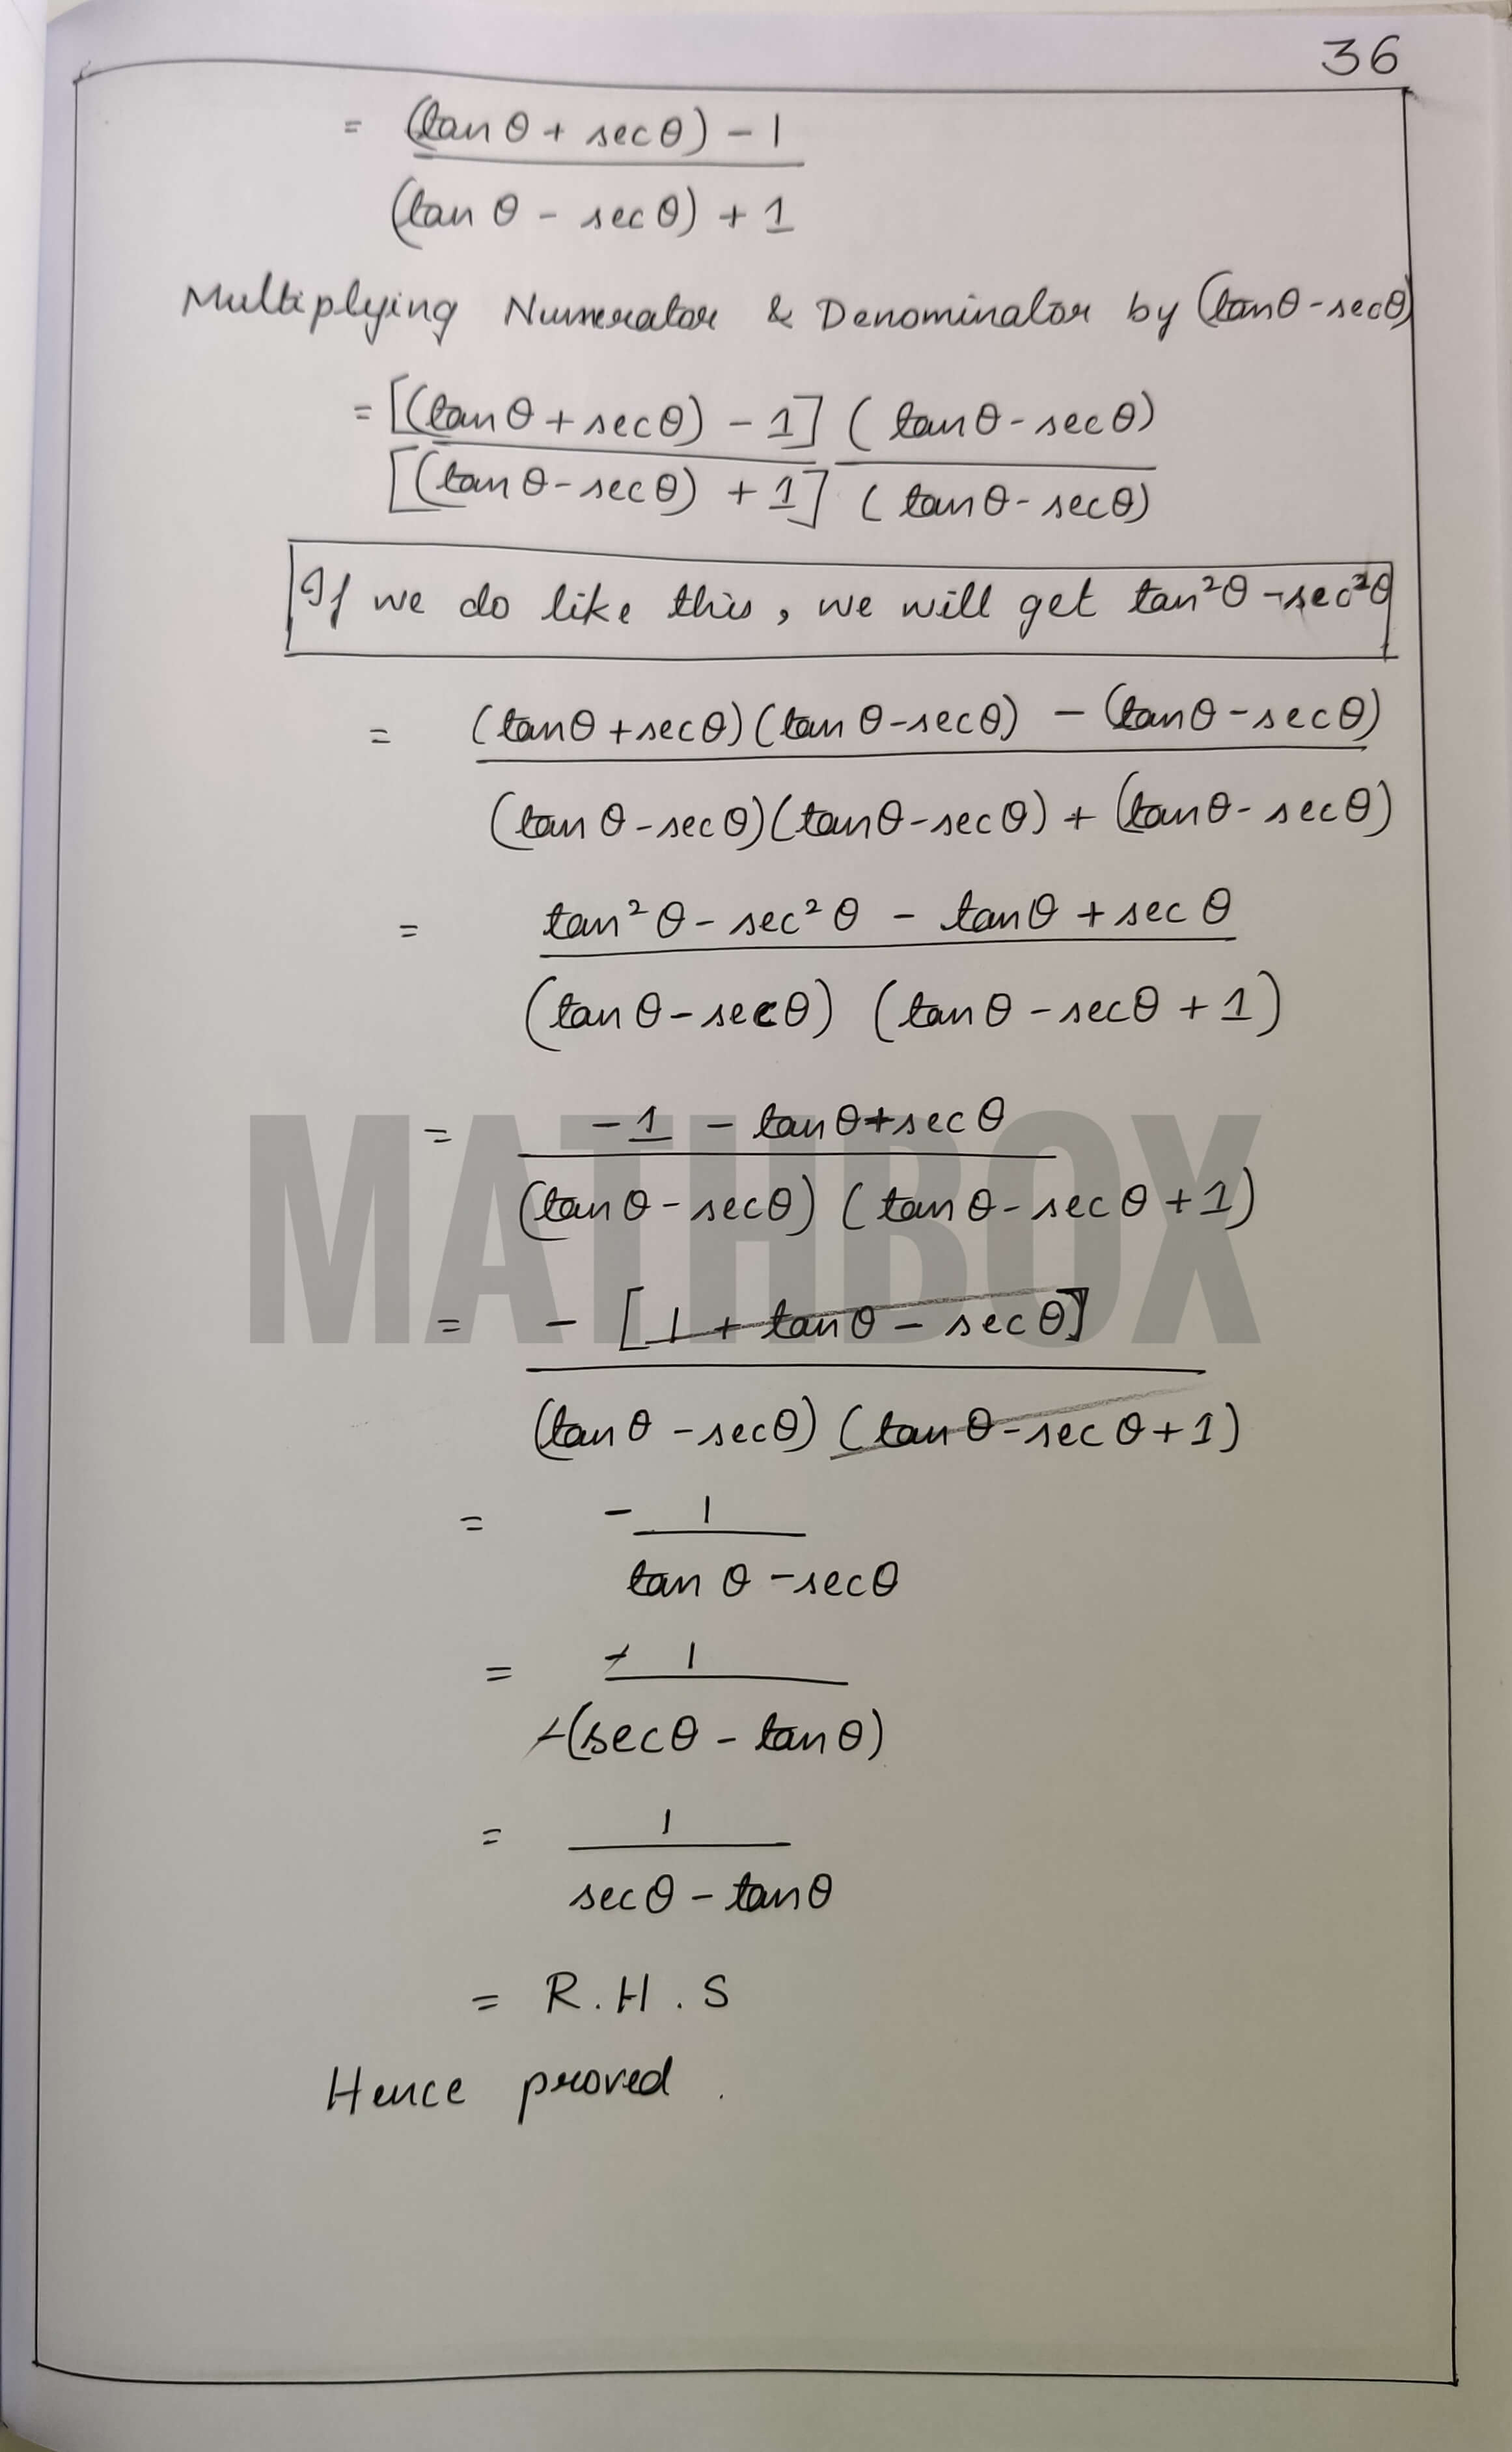 36
= (tan θ + sec θ) - 1
(tan θ - sec θ) + 1
Multiplying Numerator & Denominator by (tanθ - secθ)
= [(tan θ + sec θ) - 1] ( tan θ - sec θ)
[(tan θ - sec θ) + 1] ( tan θ - sec θ)
If we do like this, we will get tan²θ - sec²θ
= (tanθ + secθ) (tan θ - secθ) - (tanθ - sec θ)
(tan θ - sec θ) (tanθ - sec θ) + (tanθ - sec θ)
= tan² θ - sec² θ - tanθ + sec θ
(tan θ - sec θ) (tan θ - secθ + 1)
= -1 - tan θ + sec θ
(tan θ - secθ) (tan θ - sec θ + 1)
MATHBOX
= - [1 + tan θ - sec θ]
(tan θ - secθ) (tan θ - sec θ + 1)
= - 1
tan θ - secθ
= - 1
-(sec θ - tan θ)
= 1
sec θ - tan θ
= R.H.S
Hence proved.